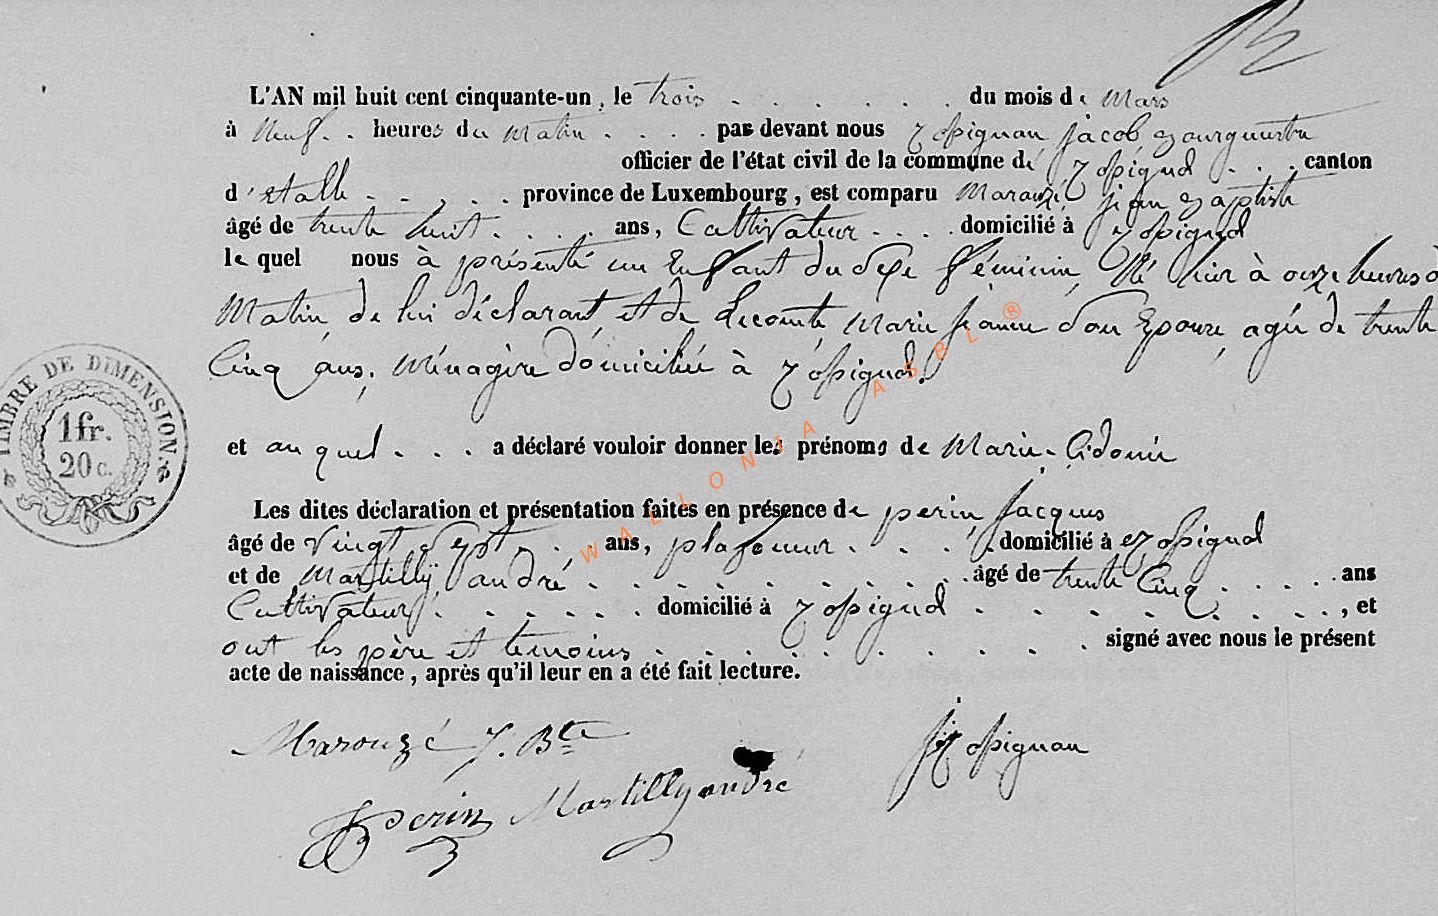 L'AN mil huit cent cinquante-un, le trois . . . . . . . du mois de Mars
à Neuf . . heures du Matin . . . . par devant nous Rossignon, jacob, Bourguestre
officier de l'état civil de la commune de Rossignol . . . canton
d'Etalle . . . . . province de Luxembourg, est comparu Marouzé, jean Baptiste
âgé de trente huit . . . . ans, Cultivateur . . . . domicilié à Rossignol
le quel nous à présenté un Enfant du sexe féminin, Né hier à onze heures d
Matin de lui déclarant, et de Lecomte Marie jeanne son Epouse, agée de trente
Cinq ans, Ménagère domiciliée à Rossignol.
et au quel . . . a déclaré vouloir donner les prénoms de Marie-Cidonie
Les dites déclaration et présentation faites en présence de perin Jacques
âgé de vingt sept . . . ans, plafoneur . . . . domicilié à Rossignol
et de Martilly andré . . . . . . . . . âgé de trente Cinq . . . . . ans
Cultivateur . . . . . . domicilié à Rossignol . . . . . . . . , et
ont les père et temoins . . . . . . . . . signé avec nous le présent
acte de naissance, après qu'il leur en a été fait lecture.
Marouzé J. Bte
j Rossignon
Perin Martilly andré
TIMBRE DE DIMENSION.
1 fr.
20 c.
WALLONIA ASBL ®